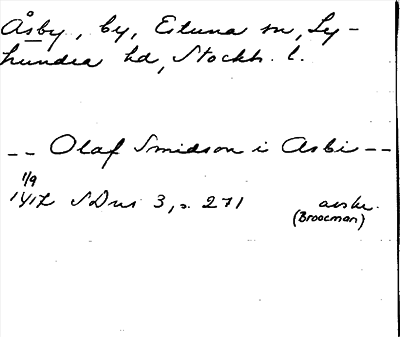 Åsby, by, Estuna sn, Ly-
hundra hd, Stockh. l.
-- Olaf Smidson i Asbi --
1/9
1417 SDns 3, s. 271 avskr.
(Broocman)